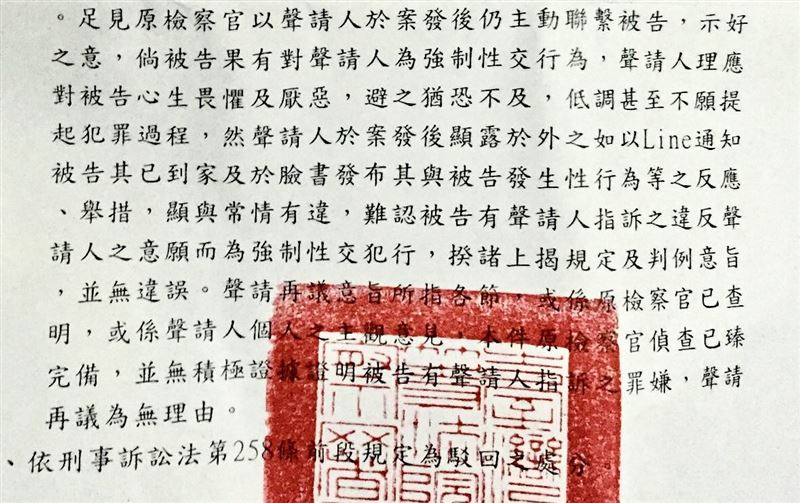 。足見原檢察官以聲請人於案發後仍主動聯繫被告，示好
之意，倘被告果有對聲請人為強制性交行為，聲請人理應
對被告心生畏懼及厭惡，避之猶恐不及，低調甚至不願提
起犯罪過程，然聲請人於案發後顯露於外之如以Line通知
被告其已到家及於臉書發布其與被告發生性行為等之反應
、舉措，顯與常情有違，難認被告有聲請人指訴之違反聲
請人之意願而為強制性交犯行，揆諸上揭規定及判例意旨
，並無違誤。聲請再議意旨所指各節，或係原檢察官已查
明，或係聲請人個人之主觀意見，本件原檢察官偵查已臻
完備，並無積極證據證明被告有聲請人指訴之罪嫌，聲請
再議為無理由。
、依刑事訴訟法第258條前段規定為駁回之處分。